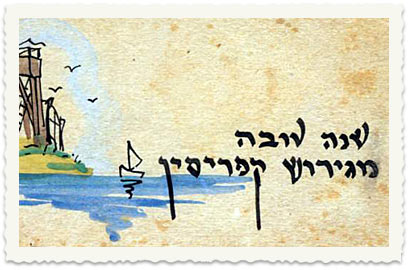 שנה טובה
מגירוש קפריסין